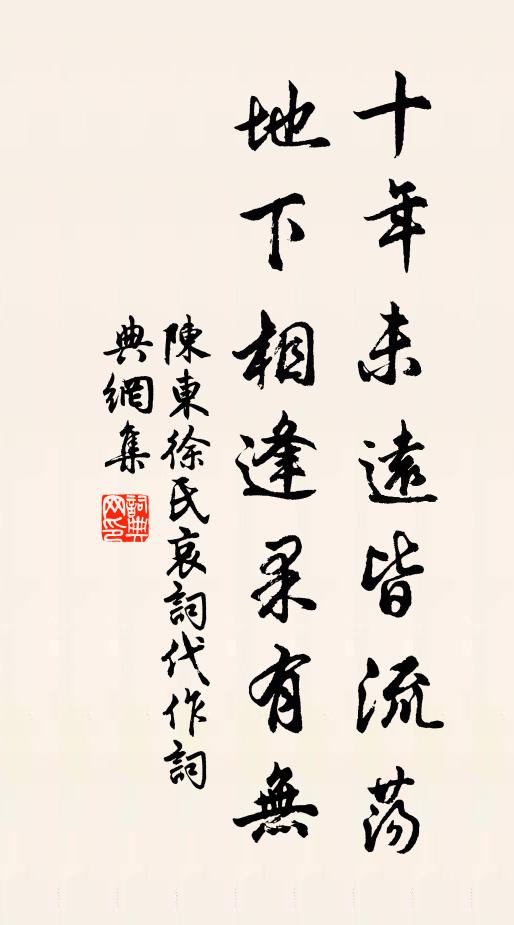 十年未遠皆流蕩
地下相逢果有無
陳東徐氏哀詞代作詞
典網集
詞典
网印